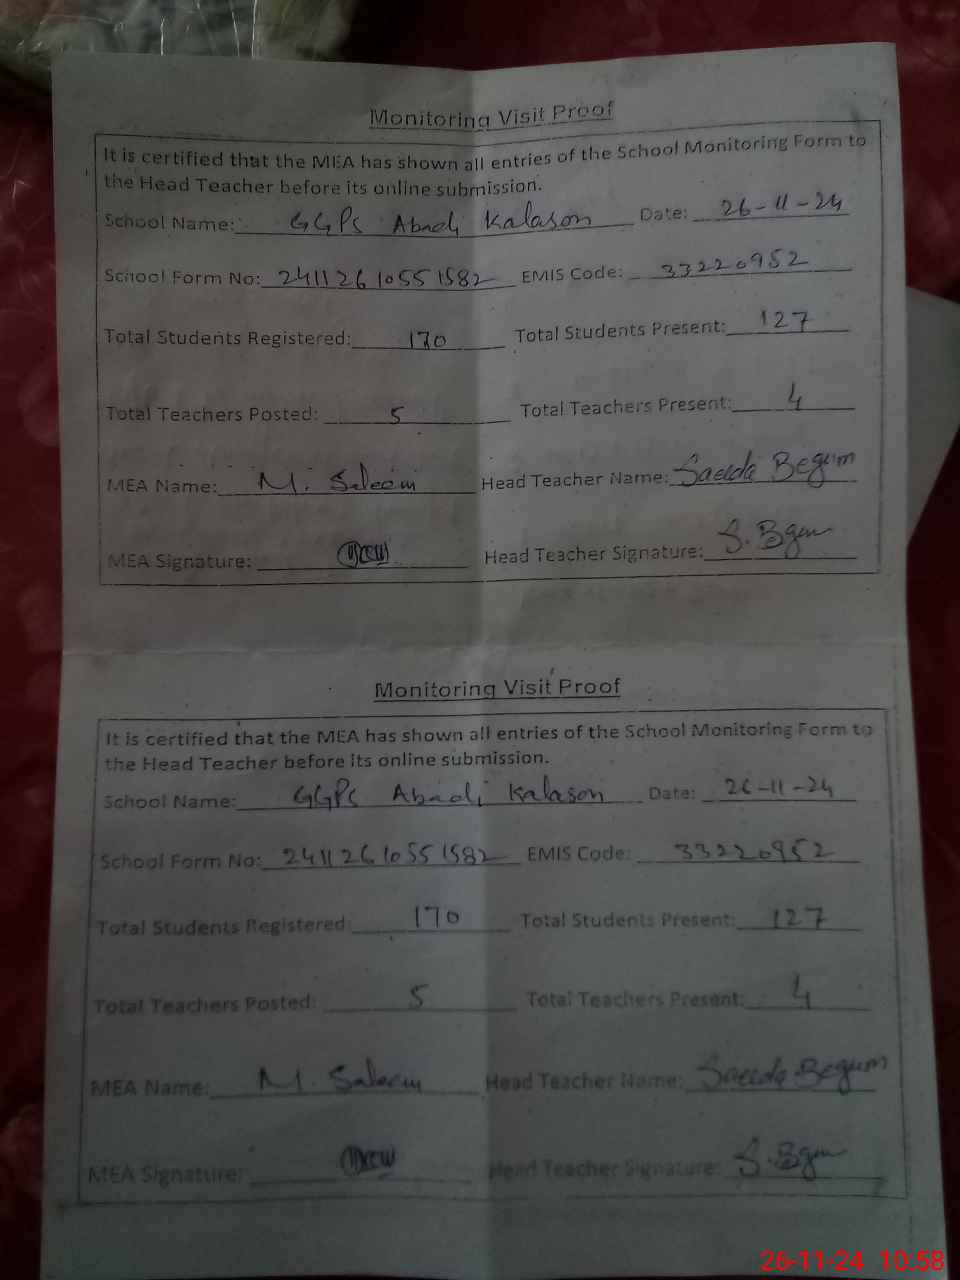 Monitoring Visit Proof
It is certified that the MEA has shown all entries of the School Monitoring Form to
the Head Teacher before its online submission.
School Name: GGPS Abadi Kalason Date: 26-11-24
School Form No: 24112610551582 EMIS Code: 33220952
Total Students Registered: 170 Total Students Present: 127
Total Teachers Posted: 5 Total Teachers Present: 4
MEA Name: M. Saleem Head Teacher Name: Saeeda Begum
MEA Signature: Head Teacher Signature: S. Bgum
Monitoring Visit Proof
It is certified that the MEA has shown all entries of the School Monitoring Form to
the Head Teacher before its online submission.
School Name: GGPS Abadi Kalason Date: 26-11-24
School Form No: 24112610551582 EMIS Code: 33220952
Total Students Registered: 170 Total Students Present: 127
Total Teachers Posted: 5 Total Teachers Present: 4
MEA Name: M. Saleem Head Teacher Name: Saeeda Begum
MEA Signature: Head Teacher Signature: S. Bgum
26-11-24 10:58